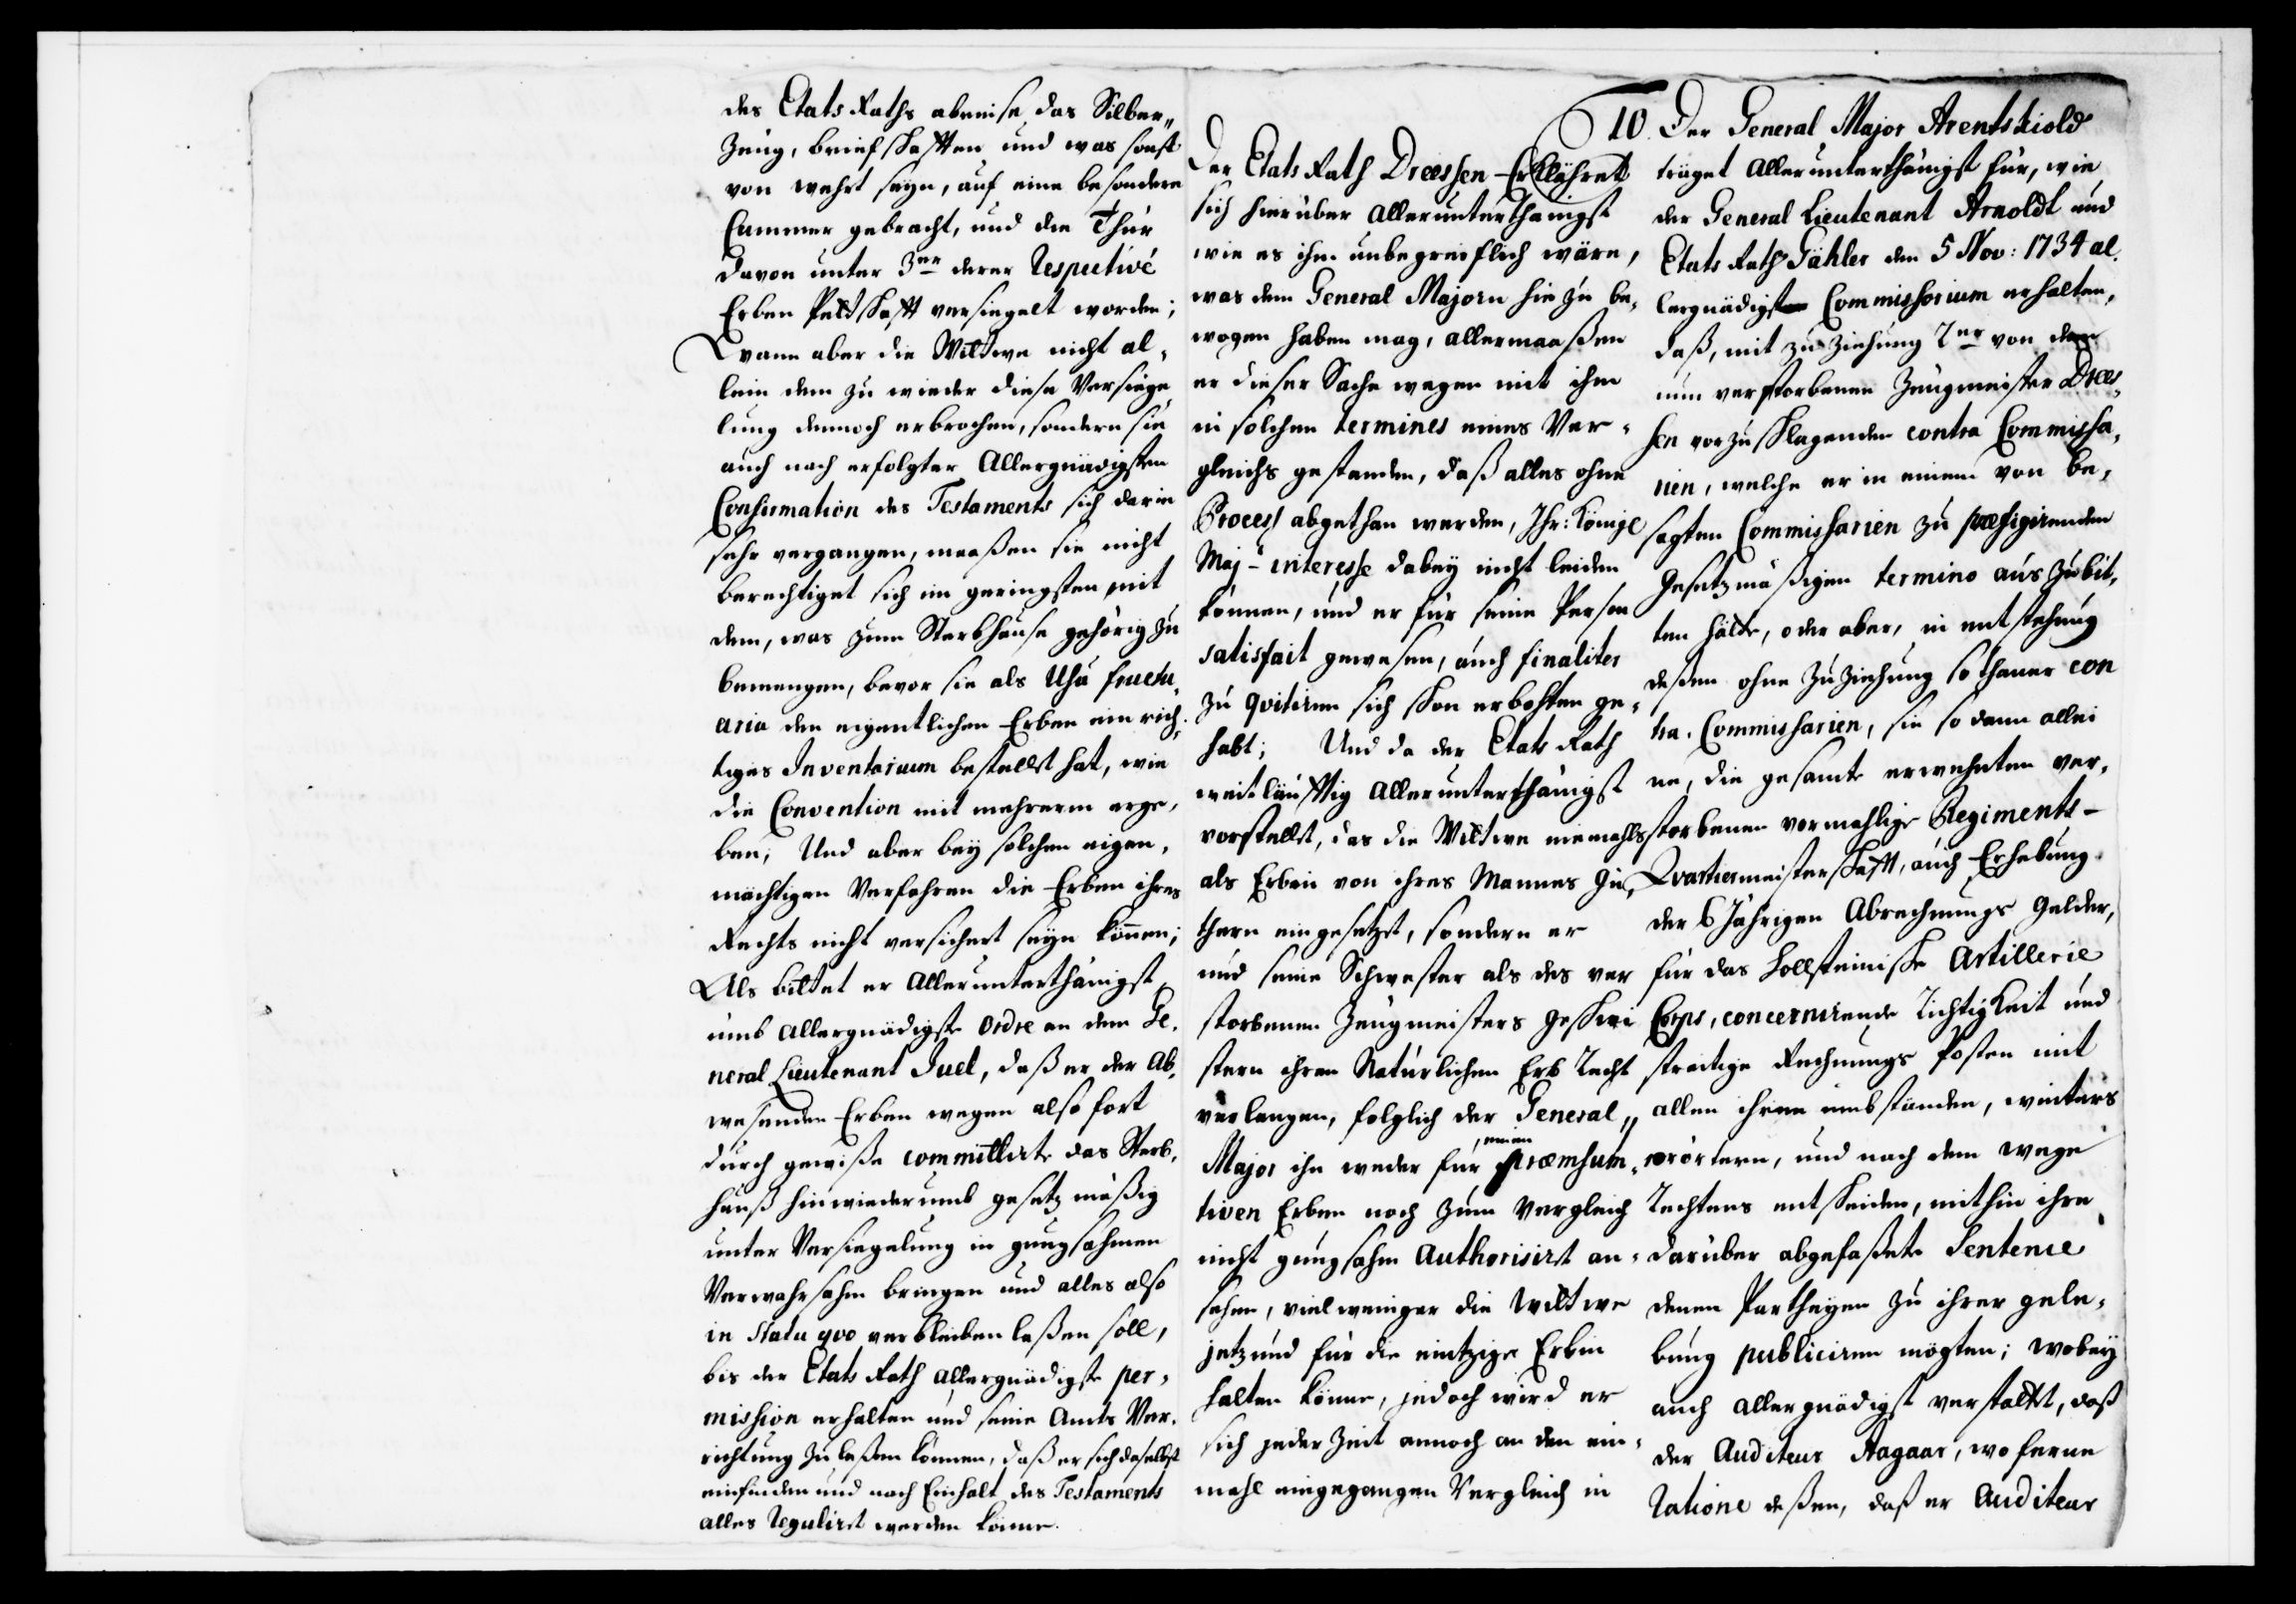 des Etats Raths abreise das Silber„
Zeug, briefschafften und was sonst
von wehrt seyn, auf eine besondere
Cammer gebracht, und die Thür
davon unter 3er derer Respectivé
Erben Pettschafft versiegelt worden;
Qvann aber die Wittwe nicht al,
lein dem zu wieder diese Versiege,
lung dennoch erbrochen, sondern sie
auch nach erfolgter Allergnädigsten
Confirmation des Testaments sich darin
sehr vergangen, maaßen sie nicht
berechtiget sich im geringsten mit
dem, was zum Sterbhause gehörig zu
bemengen, bevor sie als Usu fructu,
aria den eigentlichen Erben ein rich,
tiges Inventarium bestellet hat, wie
die Convention mit mehrerm erge,
ben; Und aber bey solchen eigen,
mächtigen Verfahren die Erben ihres
Rechts nicht versichert seyn können;
Als bittet er Allerunterthänigst
umb allergnädigste ordre an dem Ge,
neral Lieutenant Juel, daß er der Ab,
wesenden Erben wegen also fort
durch gewiße committirte das Sterb,
hauß hinwiederumb gesetz mäßig
unter Versiegelung in gnugsahmen
Verwahrsahm bringen und alles also
in Statu qvo verbleiben laßen soll,
bis der Etats Rath allergnädigste per,
mission erhalten und seine Amts Ver,
richtung zu laßen können, daß er sich daselbst
einfinden und nach Einhalt des Testaments
alles Regulirt werden könne.
Der Etats Rath Dreessen Erklähret
sich hierüber allerunterthänigst
wie es ihm unbegreiflich wäre,
was dem General Majorn hie zu be,
wogen haben mag, allermaaßen
er dieser Sache wegen mit ihm
in solchen termines eines Ver,
gleichs gestanden, daß alles ohne
Process abgethan werden, Ihr: Königl
Maj- interesse dabey nicht leiden
können, und er für seine Person
satisfait gewesen, auch finaliter
zu qvitiren sich schon erbohten ge,
habt; Und da der Etats Rath
weitläufftig Allerunterthänigst
vorstellet, das die Wittwe niemahls
als Erbin von ihres Mannes Gü,
thern eingesetzet, sondern er
und seine Schwester als des ver
storbenen Zeugmeisters Geschwi
stern ihren Natürlichen Erb Recht
verlangen, folglich der General„
Major ihn weder für einen præmsum,
tiven Erben noch zum Vergleich
nicht gnugsahm Authorisirt an,
sehen, viel weniger die Wittwe
jetzund für die eintzige Erbin
halten könne, jedoch wird er
sich jeder Zeit annoch an den ein,
mahl eingegangen Vergleich in
10. Der General Major Arentskiold
träget Allerunterthänigst für, wie
der General Lieutenant Arnoldt und
Etats Rath Gähler den 5 Nov: 1734 al,
lergnädigst Commissorium erhalten,
daß, mit zu Ziehung 2er von dem
nun verstorbenen Zeugmeister Drees,
sen vorzuschlagenden contra Commissa,
rien, welche er in einem von be,
sagten Commissarien zu præfigirenden
Gesetzmäßigen termino aus zu bit,
ten hätte, oder aber, in entstehung
deßen ohne Zuziehung sothaner con
tra. Commissarien, sie so dann allei
ne, die gesamte erwehnten ver,
storbenen vormahlige Regiments-
Qvartiermeisterschafft, auch Erhebung
der 6 Jährigen Abrechnungs Gelder,
für das Hollsteinische Artillerie
Corps, concernirende Richtigkeit und
streitige Rechnungs Posten mit
allen ihren umbständen, weiters
erörtern, und nach dem wege
Rechtens entscheiden, mithin ihre
darüber abgefaßete Sentence
denen Partheyen zu ihrer gele,
bung publiciren mögten; wobey
auch allergnädigst verstattet, daß
der Auditeur Aagaar, wo ferne
Ratione deßen, daß er Auditeur